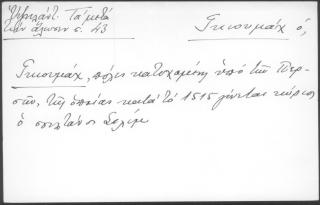 Ὑψηλάντ. Τὰ μετὰ
τὴν ἅλωσιν σ. 43
Γκιουμὰχ ὁ,
Γκιουμὰχ, πόλις κατεχομένη ὑπὸ τῶν Περ-
σῶν, τῆς ὁποίας κατὰ τὸ 1515 γίνεται κύριος
ὁ σουλτὰν Σελίμ